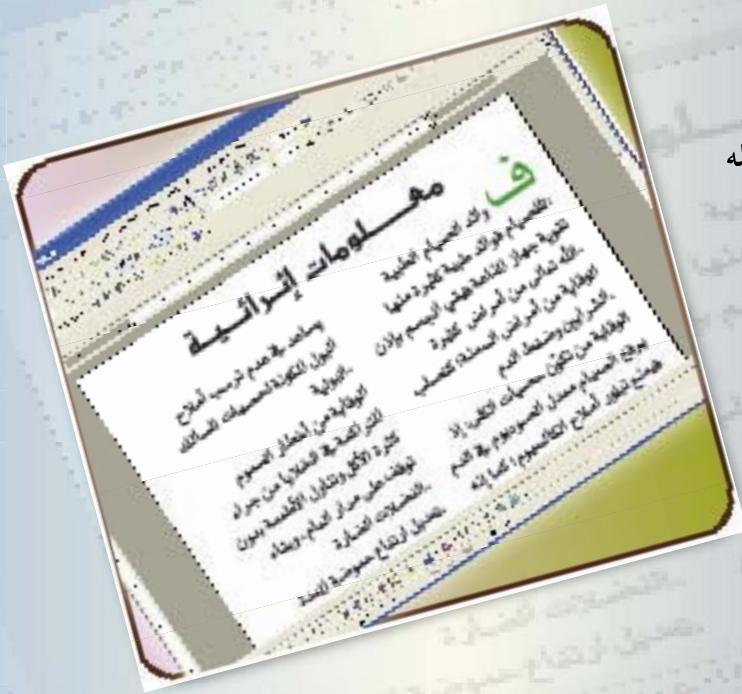 له
معلومات إثرائية
فوائد الصيام الطبية
للصيام فوائد طبية كثيرة منها:
تقوية جهاز المناعة فيقي الجسم بإذن
الله تعالى من أمراض كثيرة.
الوقاية من أمراض السمنة؛ كتصلب
الشرايين وضغط الدم.
الوقاية من تكوّن حصيات الكلى، إذ
يرفع الصيام معدل الصوديوم في الدم
فيمنع تبلور أملاح الكالسيوم، كما إنه
يساعد في عدم ترسب أملاح
البول المكونة لحصيات المسالك
البولية.
الوقاية من أخطار السموم
المتراكمة في الخلايا من جراء
كثرة الأكل وتناول الأطعمة بدون
توقف على مدار العام، وبقاء
الفضلات الضارة.
تعديل ارتفاع حموضة المعدة